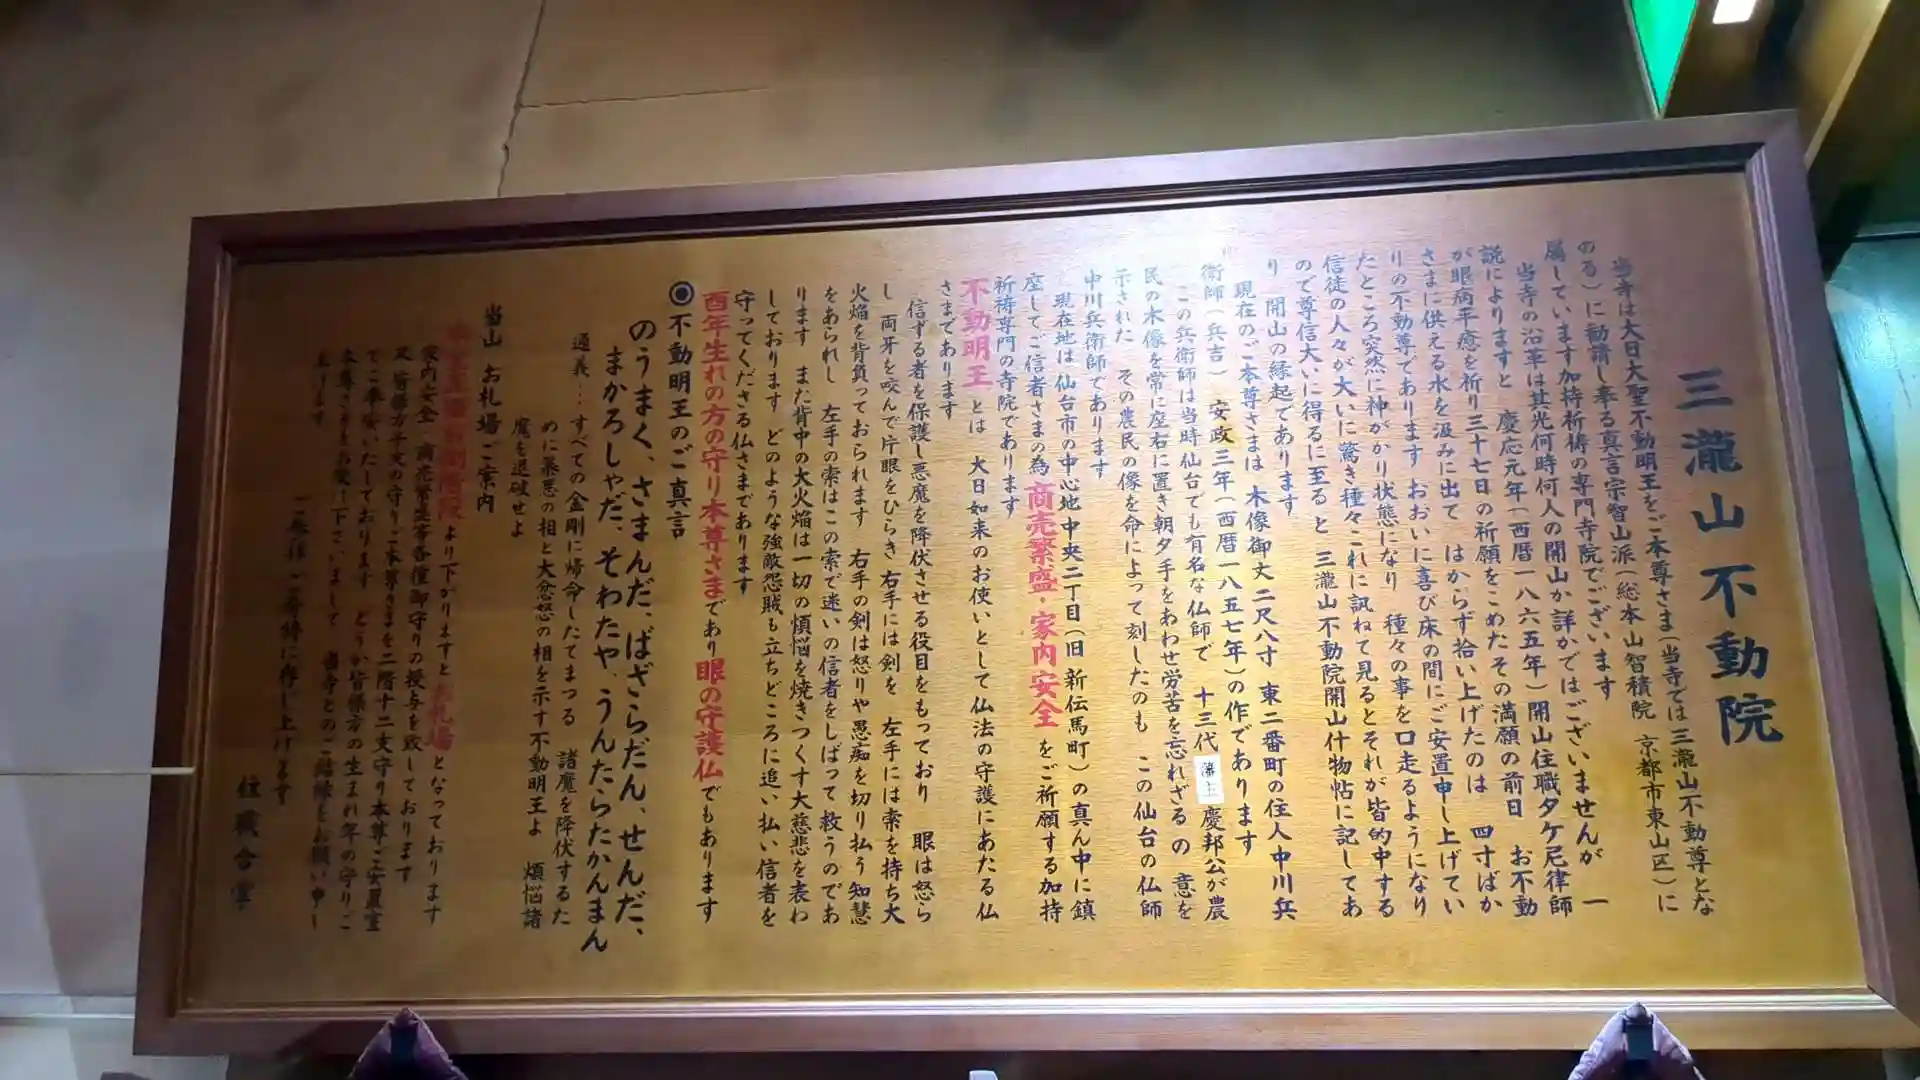 三瀧山不動院
当寺は大日大聖不動明王をご本尊さま(当寺では三瀧山不動尊とな
のる)に勧請し奉る真言宗智山派 総本山智積院 京都市東山区)に
属しています加持祈祷の専門寺院でございます
当寺の沿革は 何時何人の開山か詳かではございませんが 一
説によりますと 慶応元年(西暦一八六五年)開山住職タケ尼律師
が眼病平癒を祈り三十七日の祈願をこめたその満願の前日 お不動
さまに供える水を汲みに出て はからず拾い上げたのは 四寸ばか
りの不動尊であります おおいに喜び床の間にご安置申し上げてい
たところ突然に神がかり状態になり 種々の事を口走るようになり
信徒の人々が大いに驚き種々これに訊ねて見るとそれが皆的中する
ので尊信大いに得るに至ると 三瀧山不動院開山什物帖に記してあ
り 開山の縁起であります
現在のご本尊さまは 木像御丈二尺八寸 東二番町の住人中川兵
衛師(兵吉) 安政三年(西暦一八五七年)の作であります
この兵衛師は当時仙台でも有名な仏師で 十三代藩主慶邦公が農
民の木像を常に座右に置き朝夕手をあわせ労苦を忘れざるの 意を
示された その農民の像を命によって刻したのも この仙台の仏師
中川兵衛師であります
現在地は仙台市の中心地中央二丁目(旧 新伝馬町)の真ん中に鎮
座してご信者さまの為 商売繁盛・家内安全 をご祈願する加持
祈祷専門の寺院であります
不動明王 とは 大日如来のお使いとして仏法の守護にあたる仏
さまであります
信ずる者を保護し悪魔を降伏させる役目をもっており 眼は怒ら
し 両牙を咬んで片眼をひらき 右手には剣を 左手には索を持ち大
火焔を背負っておられます 右手の剣は怒りや愚痴を切り払う知慧
をあらわし 左手の索はこの索で迷いの信者をしばって救うのであ
ります また背中の大火焔は一切の煩悩を焼きつくす大慈悲を表わ
しております どのような強敵怨賊も立ちどころに追い払い信者を
守ってくださる仏さまであります
酉年生れの方の守り本尊さまであり眼の守護仏でもあります
◉不動明王のご真言
のうまく、さまんだ、ばざらだん、せんだ、
まかろしゃだ、そわたや、うんたらたかんまん
通義…すべての金剛に帰命したてまつる 諸魔を降伏するた
めに暴悪の相と大忿怒の相を示す不動明王よ 煩悩諸
魔を退破せよ
当山 お札場ご案内
階段 より下がりますと お札場 となっております
家内安全 商売繁盛等各種御守りの授与を致しております
又 皆様方干支の守りご本尊さまを二階十二支守り本尊ご安置室
でご奉安いたしております どうか皆様方の生まれ年の守りご
本尊さまを 下さいまして 当寺とのご結縁をお願い申し
上げます
ご参拝 上げます
住職合掌